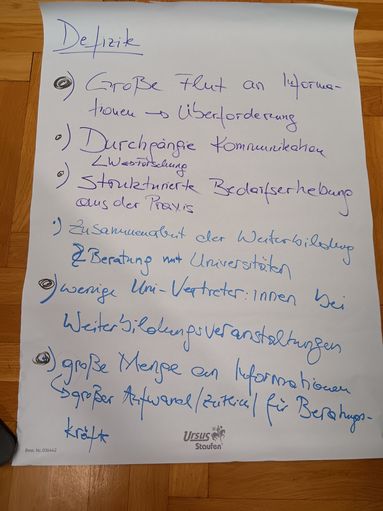 Defizite
) Große Flut an Informa-
tionen → Überforderung
) Durchgängie Kommunikation
) Strukturierte Bedarfserhebung
aus der Praxis
) Zusammenarbeit der Weiterbildung
& Beratung mit Universitäten
) wenige Uni-Vertreter:innen bei
Weiterbildungsveranstaltungen
) große Menge an Informationen
↳ großer Aufwand/zeitlich/ für Beratungs-
kräfte
Ursus
Staufen
Best. Nr. 036442